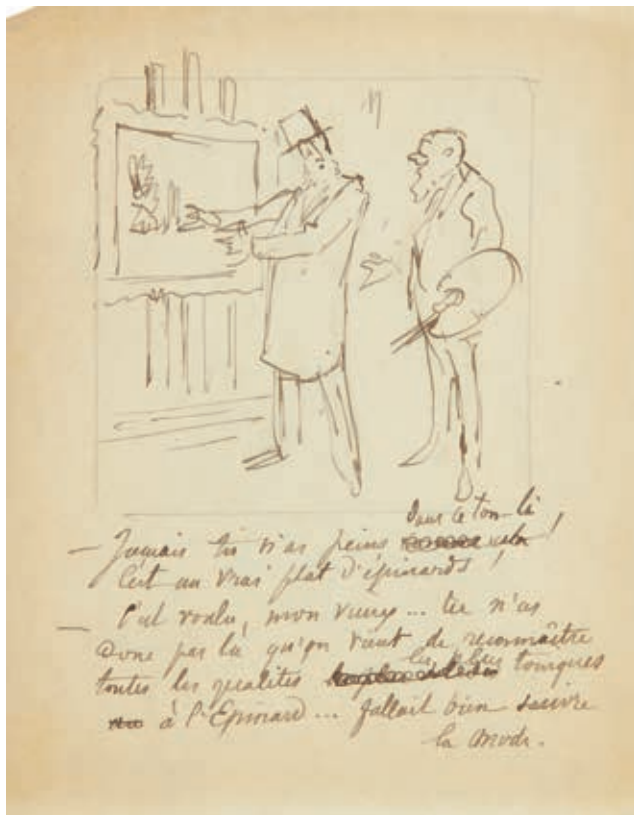 dans ce ton-là !
— Jamais tu n'as peint
C'est un vrai plat d'épinards !
— C'est voulu, mon vieux... tu n'as
donc pas lu qu'on vient de reconnaître
toutes les qualités les plus toniques
à l'Epinard... fallait bien suivre
la mode.